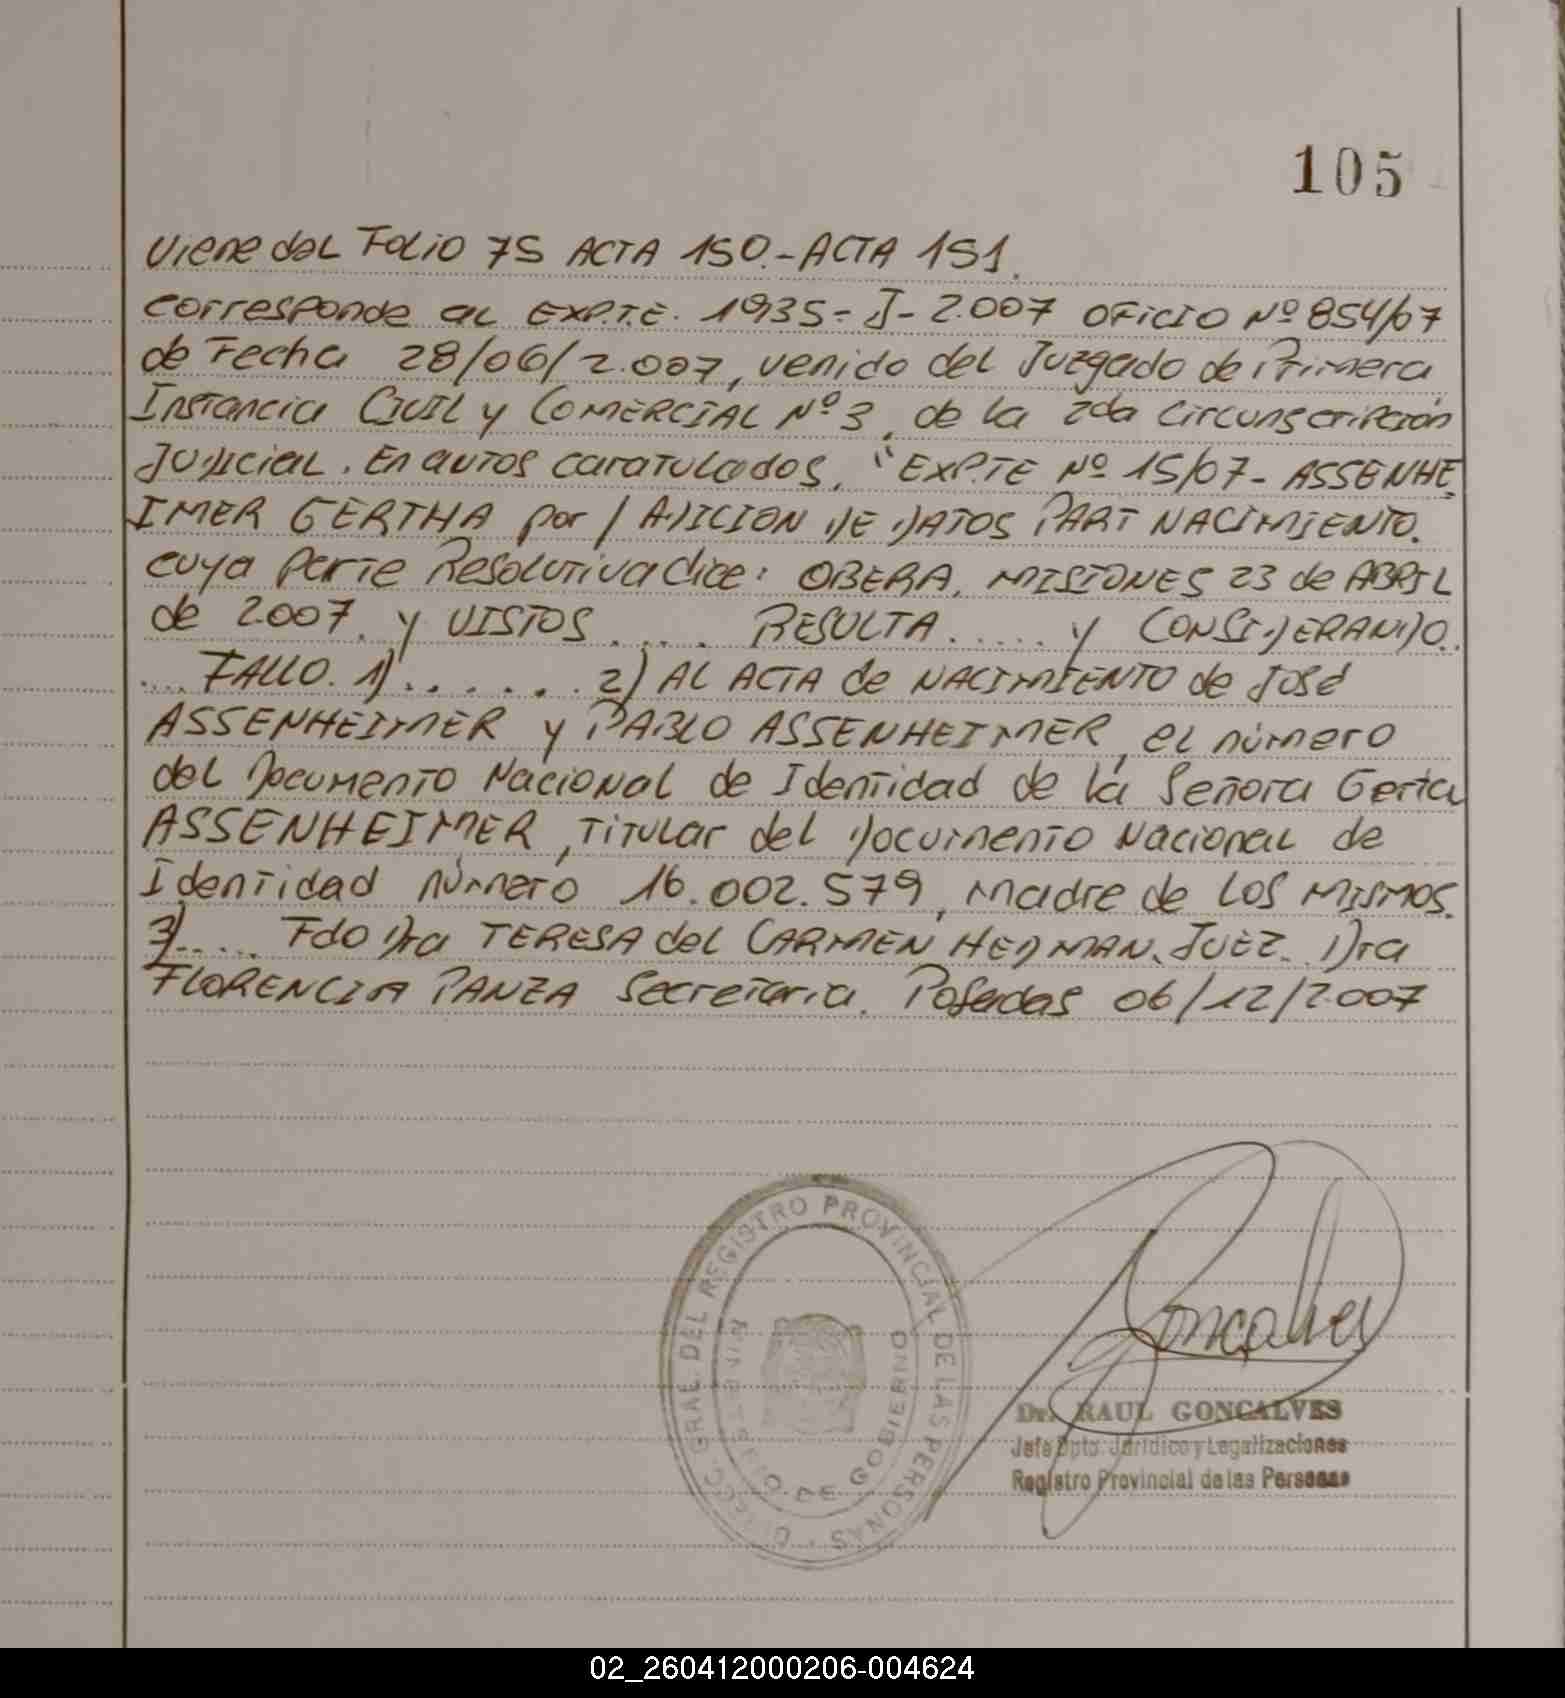 105
Viene del Folio 75 ACTA 150.- ACTA 151.
corresponde al EXP.T.E. 1935 - J - 2.007 OFICIO Nº 854/07
de Fecha 28/06/2.007, venido del Juzgado de Primera
Instancia CIVIL y COMERCIAL Nº 3, de la 2da Circunscripción
Judicial. En autos caratulados, "EXP.TE Nº 15/07 - ASSENHE
IMER GERTHA por / ADICION DE DATOS PART NACIMIENTO.
cuya parte Resolutiva dice: OBERA, MISIONES 23 de ABRIL
de 2007, y VISTOS..... RESULTA..... y CONSIDERANDO..
.... FALLO. 1)...... 2) AL ACTA de NACIMIENTO de José
ASSENHEIMER y PABLO ASSENHEIMER, el número
del Documento Nacional de Identidad de la Señora Gerta
ASSENHEIMER, Titular del Documento Nacional de
Identidad número 16.002.579, madre de los mismos.
3)..... Fdo Dra TERESA del CARMEN HEDMAN. JUEZ. Dra
FLORENCIA PANZA Secretaria. Posadas 06/12/2.007
DIRECC. GRAL. DEL REGISTRO PROVINCIAL DE LAS PERSONAS
MINISTERIO DE GOBIERNO
Goncalves
Dr. RAUL GONCALVES
Jefe Dpto. Jurídico y Legalizaciones
Registro Provincial de las Personas
02_260412000206-004624